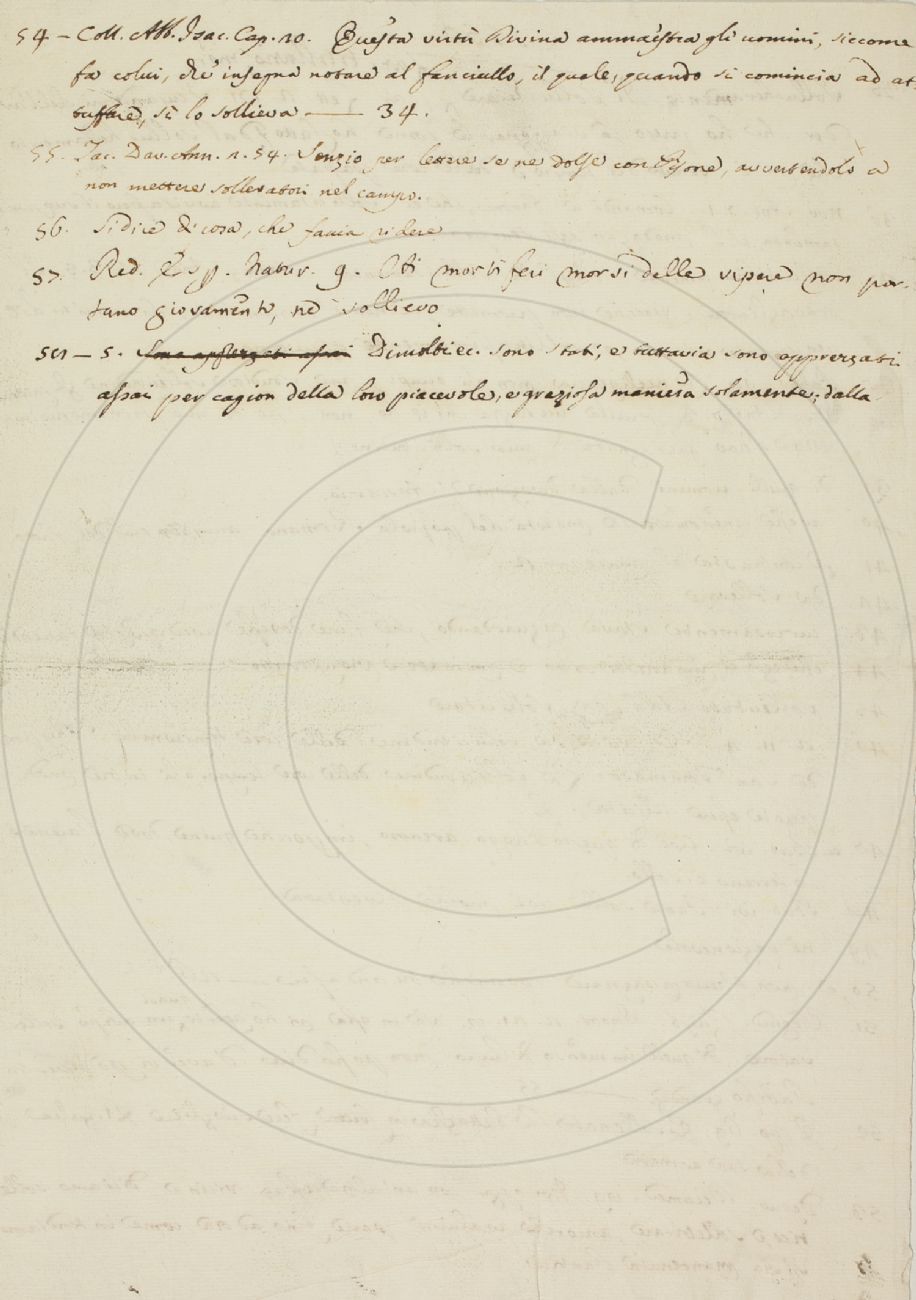 54 – Coll. Abb. Isac. Cap. 20. Questa virtù Divina ammaestra gli uomini, siccome
fa colui, che insegna notare al fanciullo, il quale, quando si comincia ad at-
tuffare, sì lo sollieva —— 34.
55. Tac. Dav. Ann. 2. 54. Senzio per lettere se ne dolse con Pisone, avvertendolo a
non mettere sollevatori nel campo.
56. Si dice di cosa, che faccia ridere
57. Red. Esp. Natur. 9. Oti mortiferi morsi delle vipere non por-
tano giovamento, nè sollievo
– 5. Sono apprezzati assai Dimolti ec. sono stati, e tuttavia sono apprezzati
assai per cagion della loro piacevole, e graziosa maniera solamente, dalla